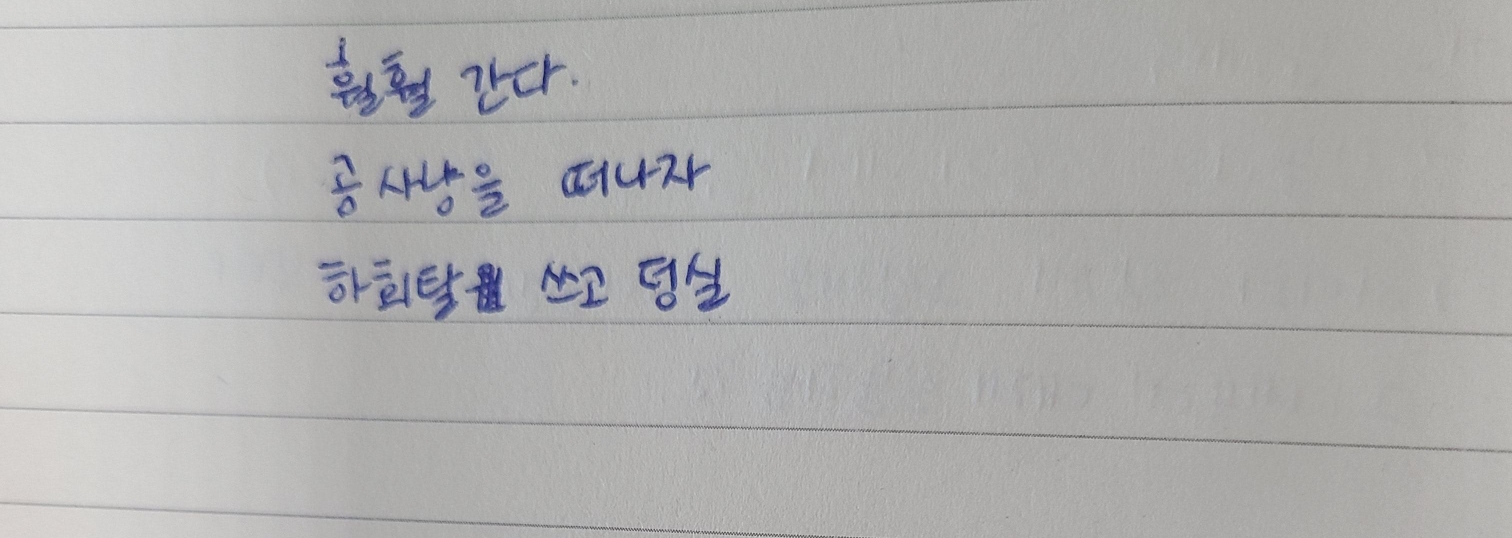 훨훨 간다.
공 사냥을 떠나자
하회탈 쓰고 덩실